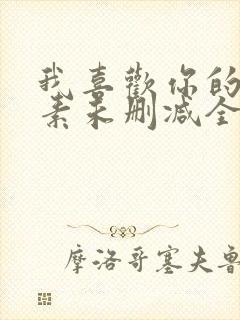 我喜歡你的
素未删减全
摩洛哥塞夫鲁